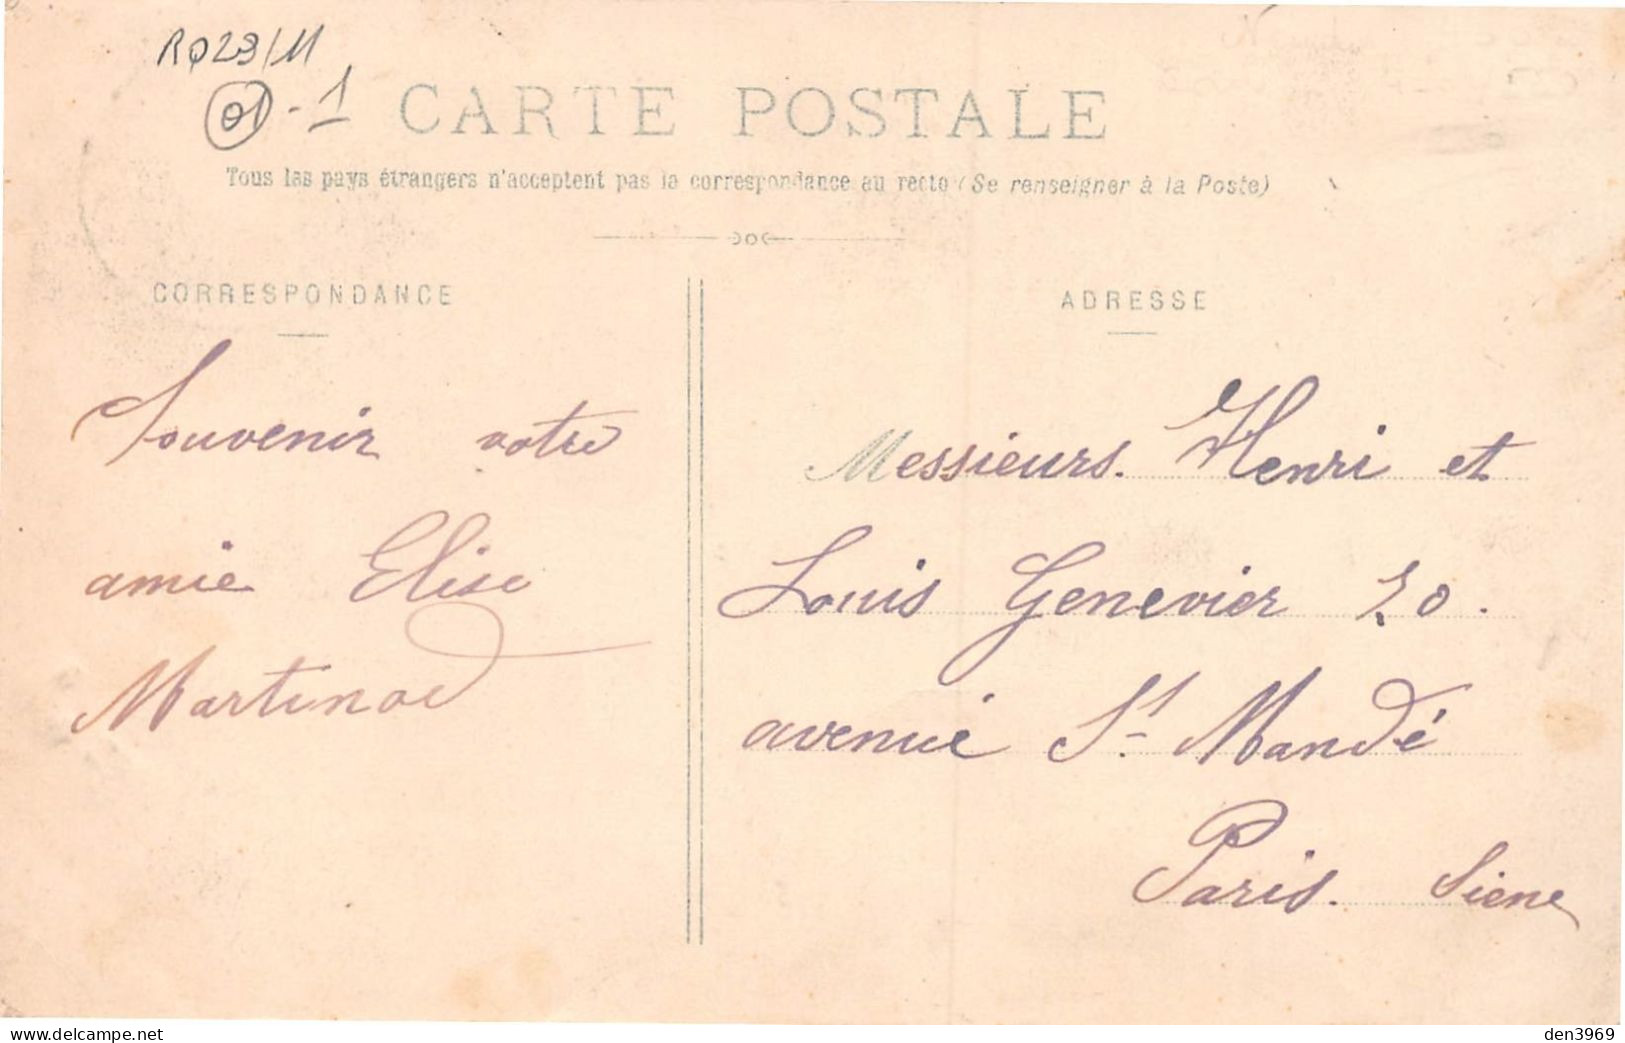 RQ23/11
01 - 1
CARTE POSTALE
Tous les pays étrangers n'acceptent pas la correspondance au recto (Se renseigner à la Poste)
CORRESPONDANCE
Souvenir votre
amie Elise
Martinod
ADRESSE
Messieurs. Henri et
Louis Genevier 20.
avenue St Mandé
Paris. Siene
den3969